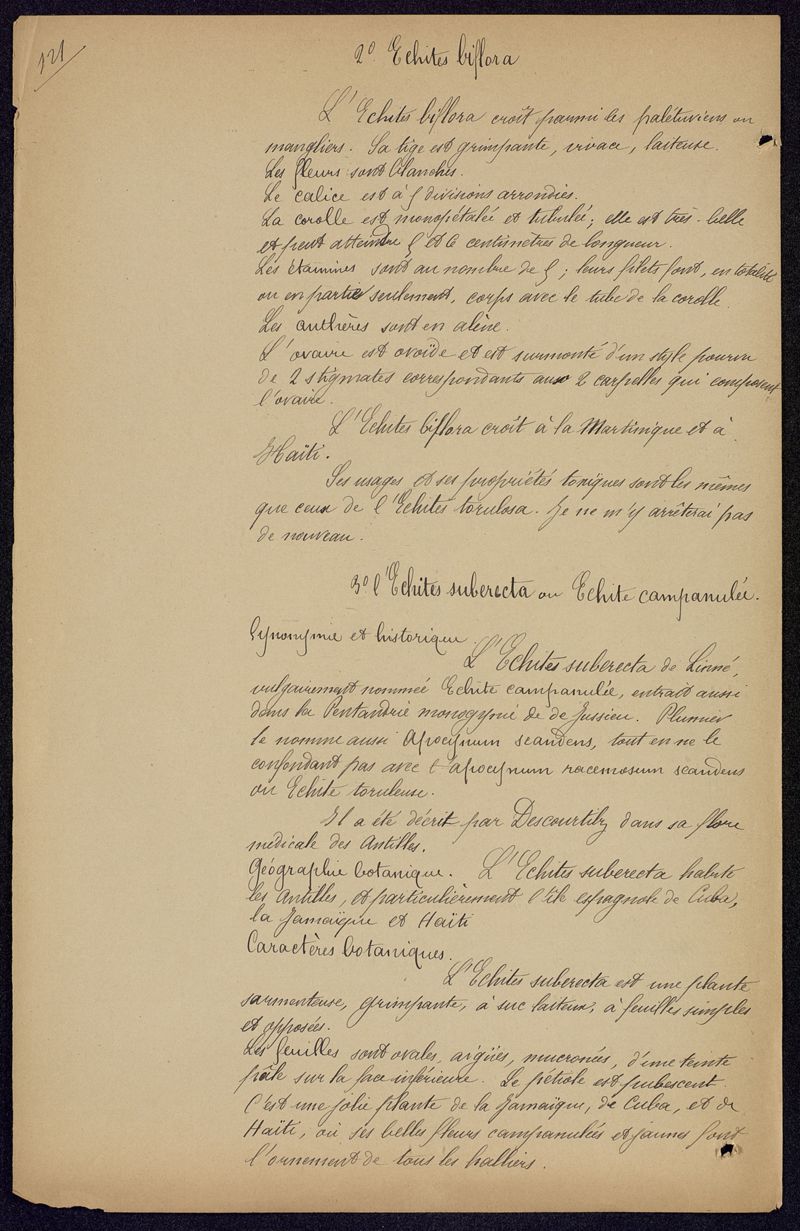 121
2° Echites biflora
L'Echites biflora croît parmi les palétuviers ou
mangliers. Sa tige est grimpante, vivace, laiteuse.
Les fleurs sont blanches.
Le calice est à 5 divisions arrondies.
La corolle est monopétalée et tubulée; elle est très-belle
et peut atteindre 5 et 6 centimètres de longueur.
Les étamines sont au nombre de 5; leurs filets font, en totalité
ou en partie seulement, corps avec le tube de la corolle.
Les anthères sont en alène.
L'ovaire est ovoïde et est surmonté d'un style pourvu
de 2 stigmates correspondants aux 2 carpelles qui composent
l'ovaire.
L'Echites biflora croît à la Martinique et à
Haïti.
Ses usages et ses propriétés toxiques sont les mêmes
que ceux de l'Echites torulosa. Je ne m'y arrêterai pas
de nouveau.
3° l'Echites suberecta ou Echite campanulée.
Synonymie et historique.
L'Echites suberecta de Linné,
vulgairement nommée Echite campanulée, entrait aussi
dans la Pentandrie monogynie de de Jussieu. Plumier
le nomme aussi Apocynum scandens, tout en ne le
confondant pas avec l'apocynum racemosum scandens
ou Echite toruleuse.
Il a été décrit par Descourtilz dans sa flore
médicale des Antilles.
Géographie botanique. L'Echites suberecta habite
les Antilles, et particulièrement l'île espagnole de Cuba,
la Jamaïque et Haïti
Caractères botaniques.
L'Echites suberecta est une plante
sarmenteuse, grimpante, à suc laiteux, à feuilles simples
et opposées.
Les feuilles sont ovales, aigües, mucronées, d'une teinte
pâle sur la face inférieure. Le pétiole est pubescent.
C'est une jolie plante de la Jamaïque, de Cuba, et de
Haïti, où ses belles fleurs campanulées et jaunes font
l'ornement de tous les halliers.